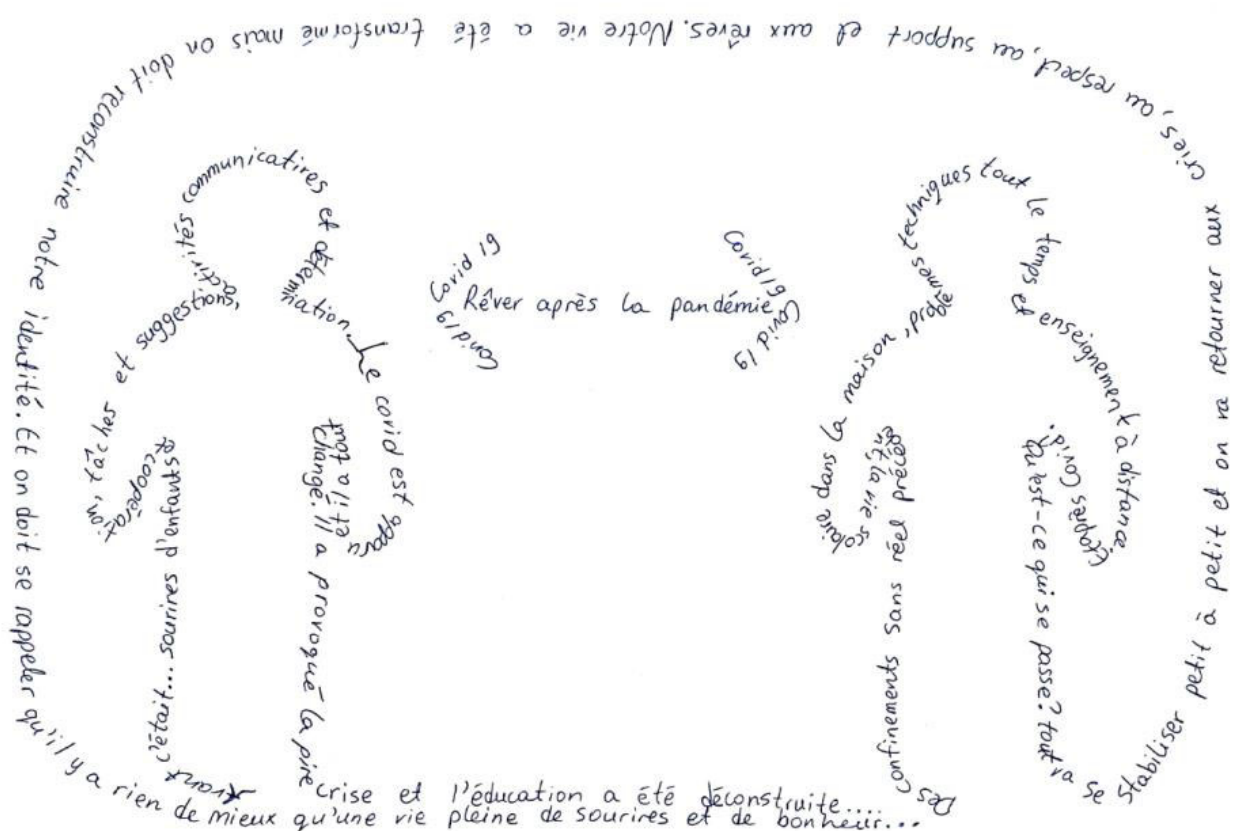 Covid 19
Covid 19
Rêver après la pandémie
Covid 19
Covid 19
Avant c'était... sourires d'enfants et coopération, tâches et suggestions, activités communicatives et détermination. Le covid est apparu et il a tout changé. Il a provoqué la pire crise et l'éducation a été déconstruite....
Des confinements sans réel précédent, la vie scolaire dans la maison, problèmes techniques tout le temps et enseignement à distance. Et après Covid. Qu'est-ce qui se passe? tout va se stabiliser petit à petit et on va retourner aux cries, au respect, au support et aux rêves. Notre vie a été transformé mais on doit reconstruire notre identité. Et on doit se rappeler qu'il y a rien de mieux qu'une vie pleine de sourires et de bonheur...